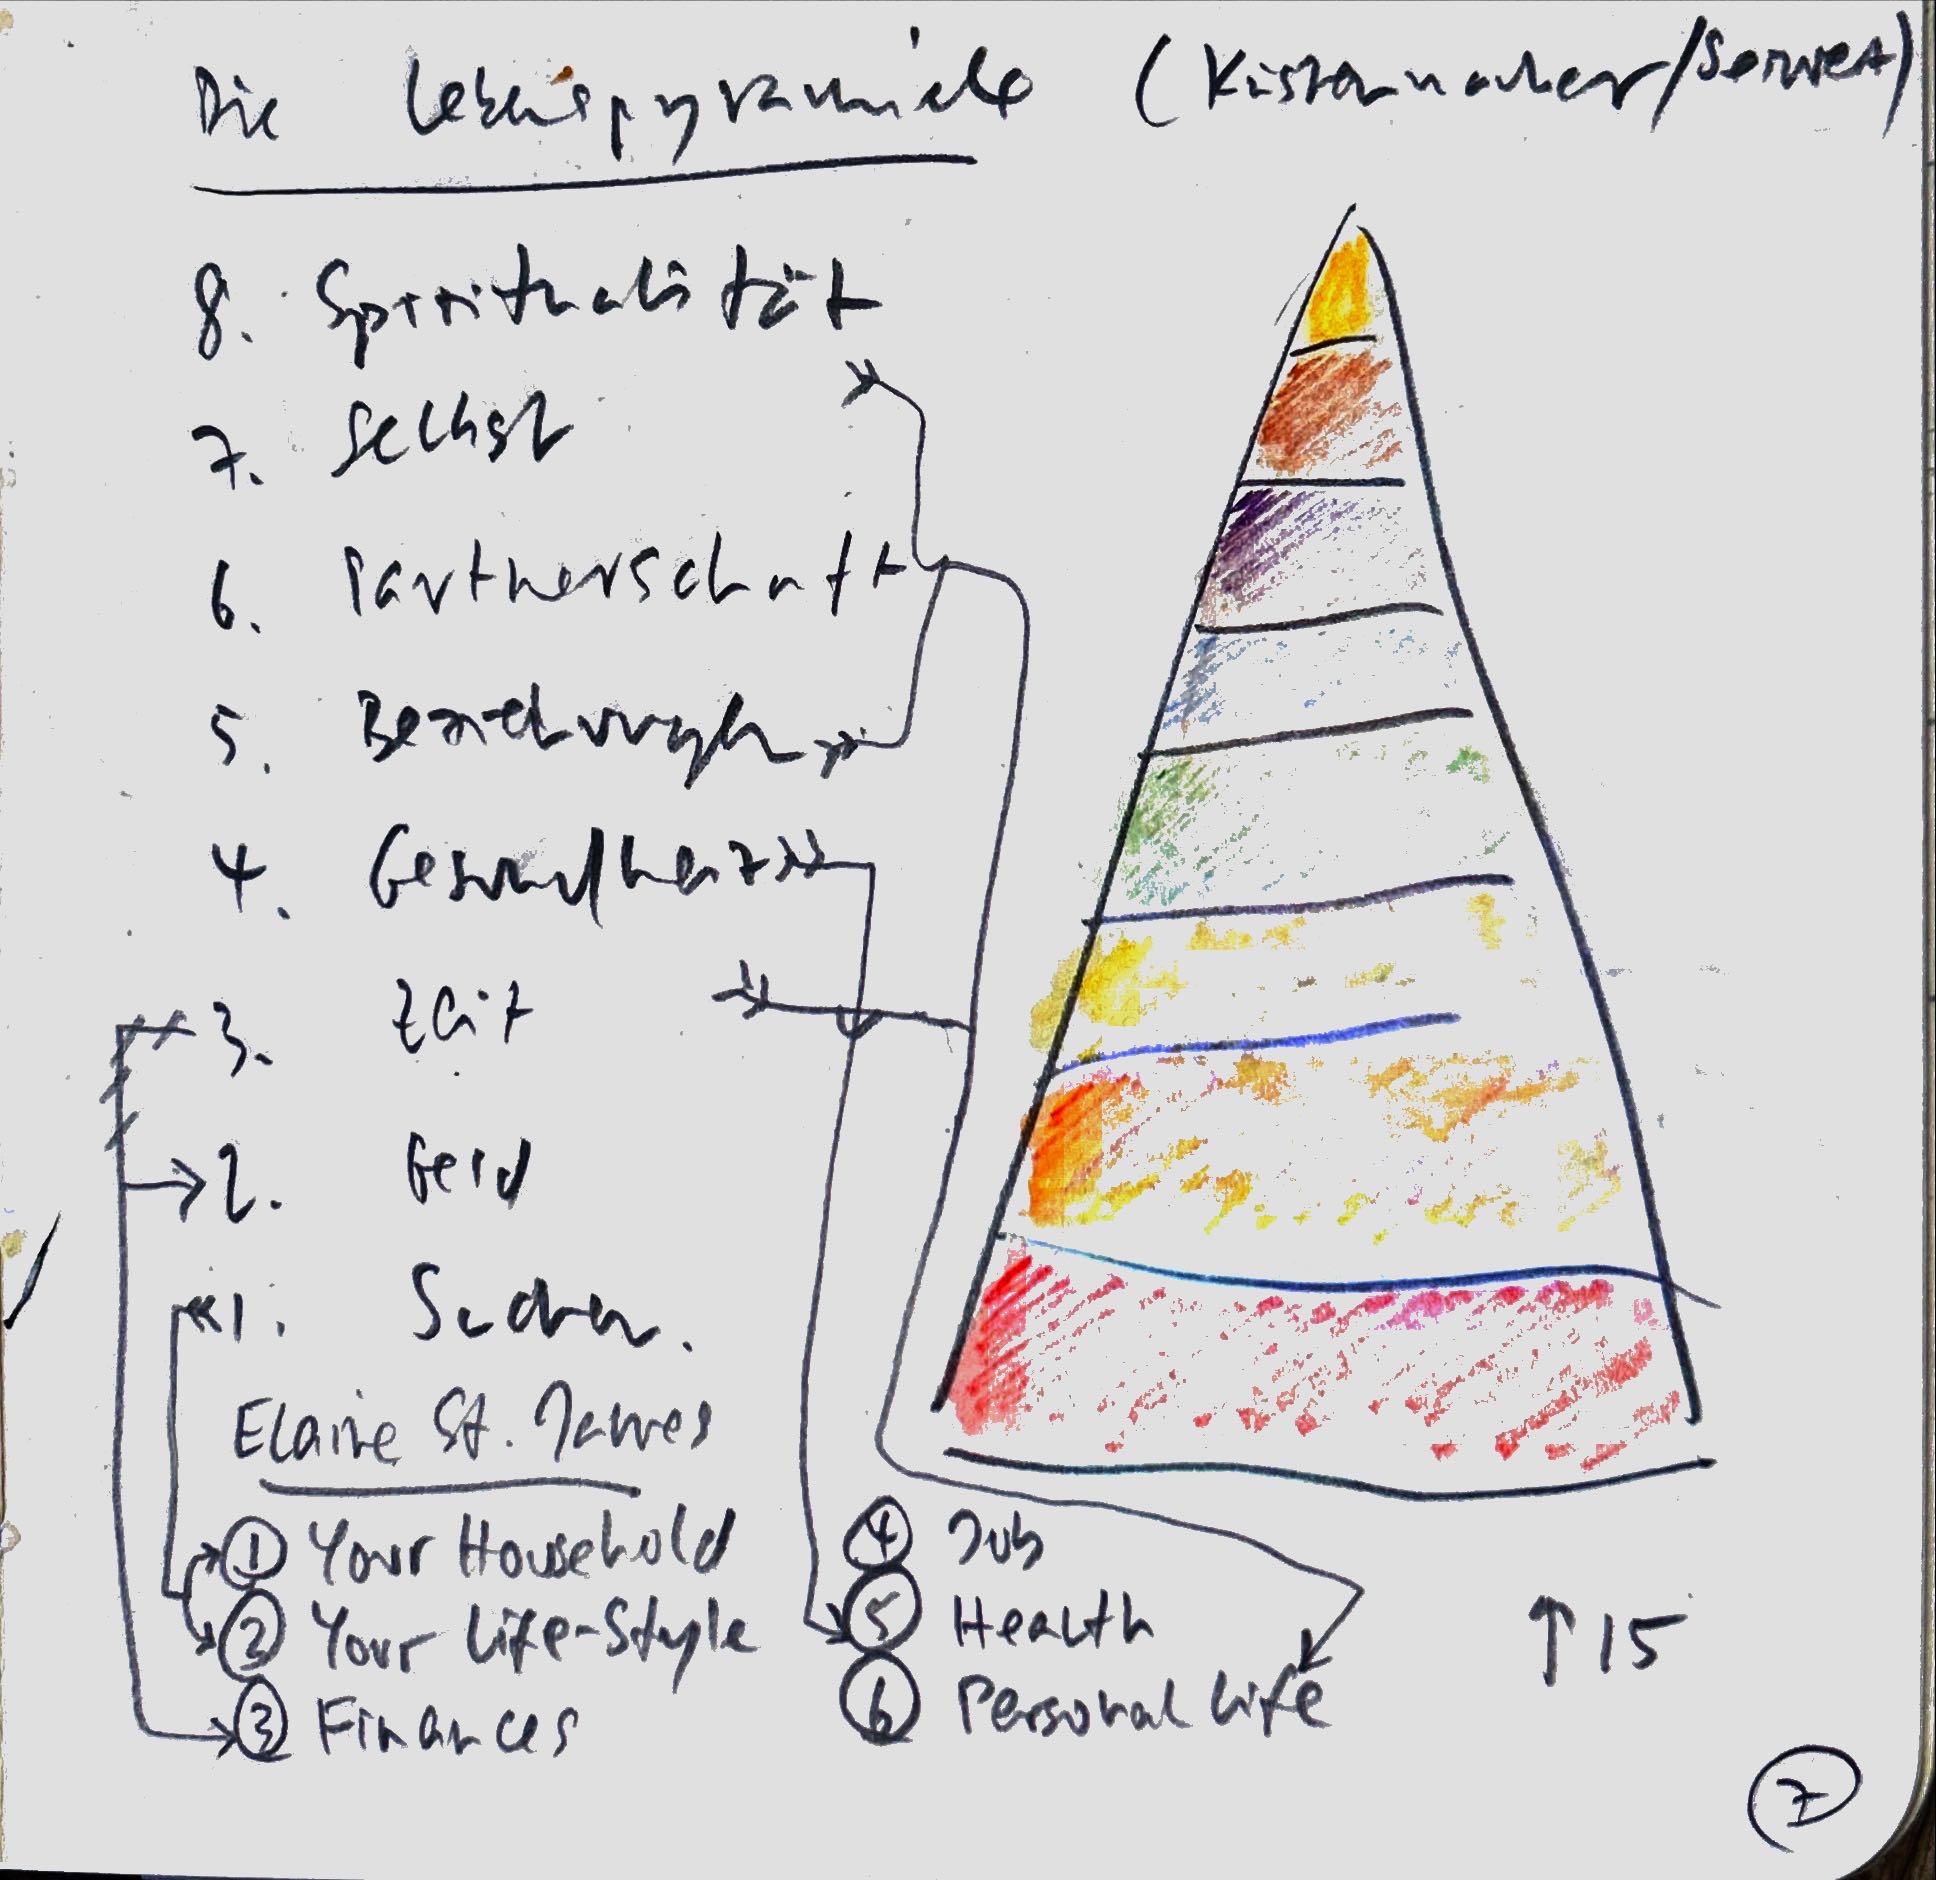 Die Lebenspyramide (Küstenmacher/Seiwert)
8. Spiritualität
7. Selbst
6. Partnerschaft
5. Beziehungen
4. Gesundheit
3. Zeit
2. Geld
1. Sachen.
Elaine St. James
① Your Household
② Your Life-Style
③ Finances
④ Job
⑤ Health
⑥ Personal Life
↑ 15
7